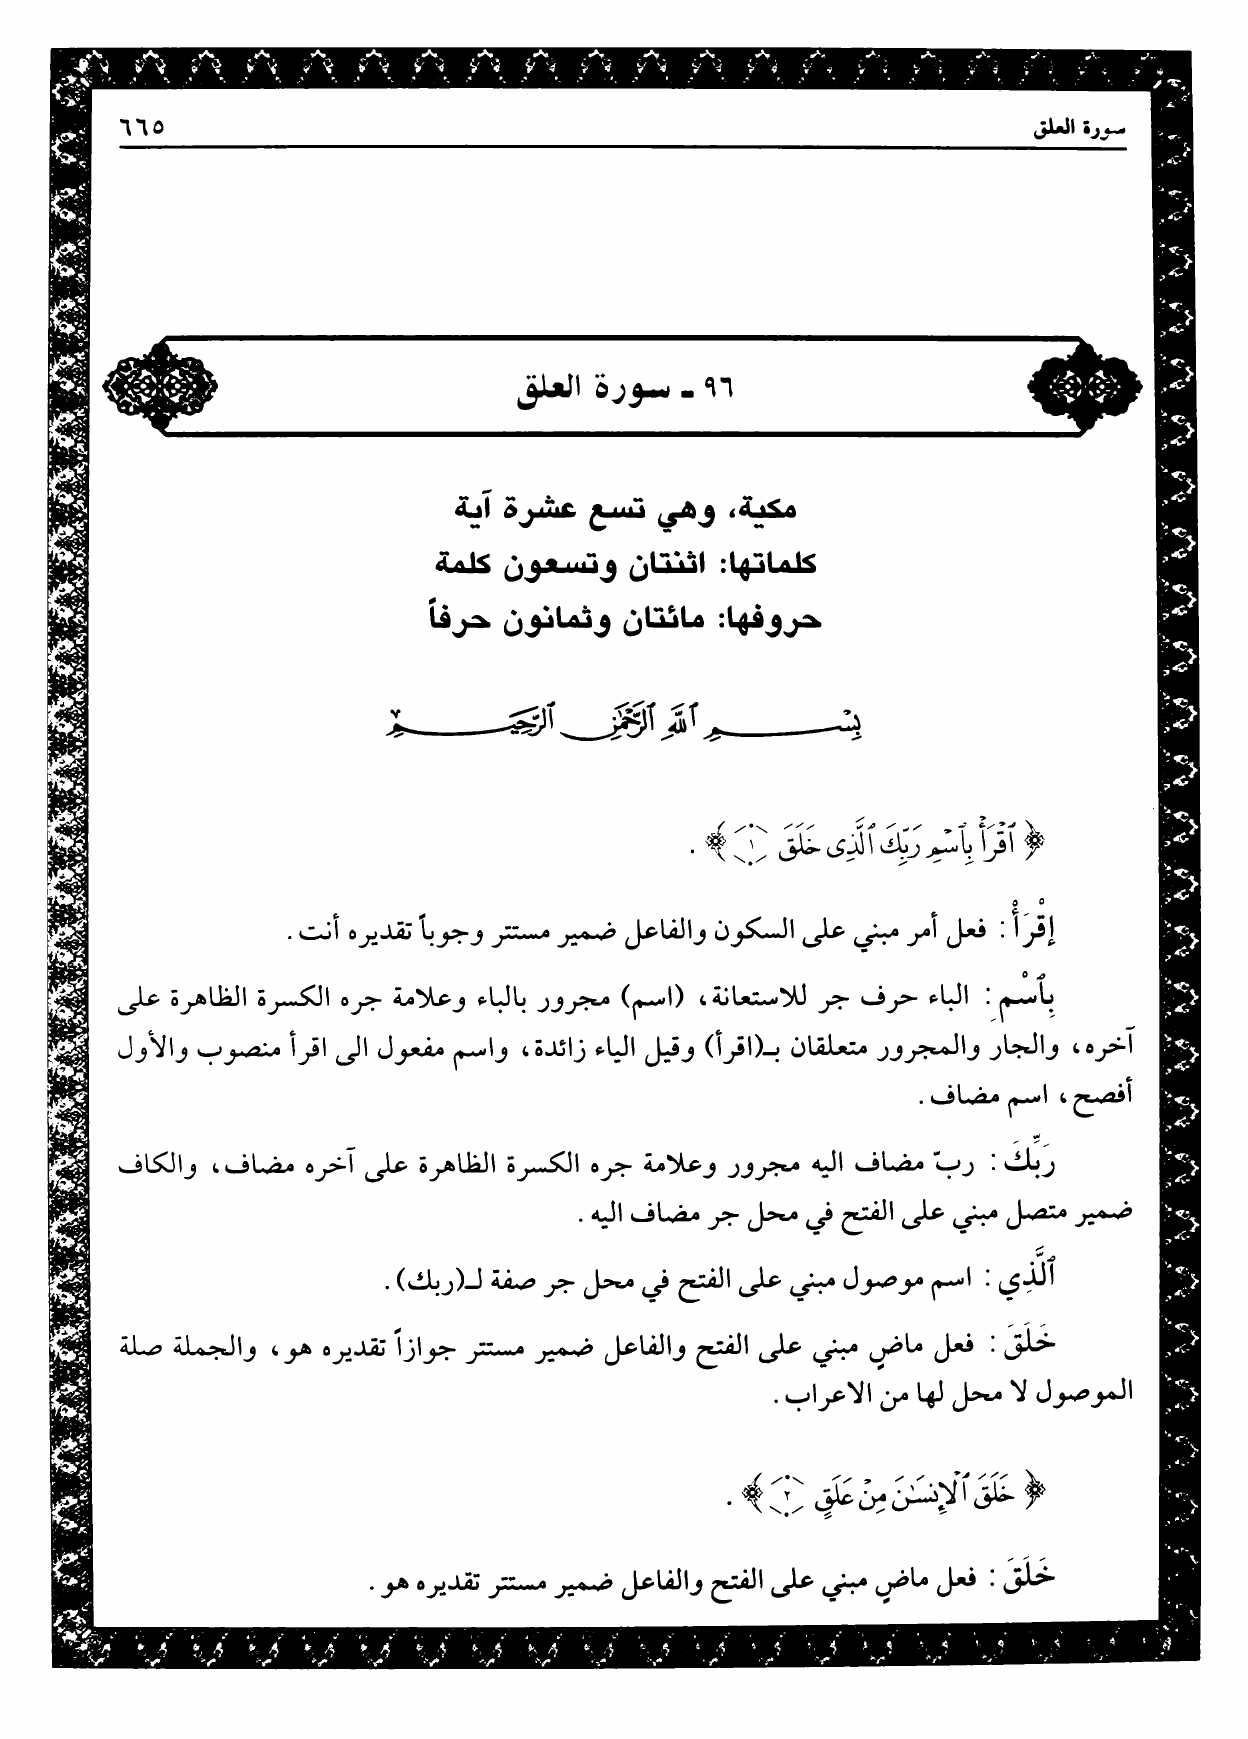 سورة العلق ٦٦٥
٩٦ ـ سورة العلق
مكية، وهي تسع عشرة آية
كلماتها: اثنتان وتسعون كلمة
حروفها: مائتان وثمانون حرفاً
بِسْمِ ٱللَّهِ ٱلرَّحْمَٰنِ ٱلرَّحِيمِ
﴿ ٱقْرَأْ بِٱسْمِ رَبِّكَ ٱلَّذِى خَلَقَ ١ ﴾ .
إِقْرَأْ : فعل أمر مبني على السكون والفاعل ضمير مستتر وجوباً تقديره أنت .
بِٱسْمِ : الباء حرف جر للاستعانة، (اسم) مجرور بالباء وعلامة جره الكسرة الظاهرة على
آخره، والجار والمجرور متعلقان بـ(اقرأ) وقيل الياء زائدة، واسم مفعول الى اقرأ منصوب والأول
أفصح، اسم مضاف .
رَبِّكَ : ربّ مضاف اليه مجرور وعلامة جره الكسرة الظاهرة على آخره مضاف، والكاف
ضمير متصل مبني على الفتح في محل جر مضاف اليه .
ٱلَّذِي : اسم موصول مبني على الفتح في محل جر صفة لـ(ربك) .
خَلَقَ : فعل ماضٍ مبني على الفتح والفاعل ضمير مستتر جوازاً تقديره هو، والجملة صلة
الموصول لا محل لها من الاعراب .
﴿ خَلَقَ ٱلْإِنسَٰنَ مِنْ عَلَقٍ ٢ ﴾ .
خَلَقَ : فعل ماضٍ مبني على الفتح والفاعل ضمير مستتر تقديره هو .